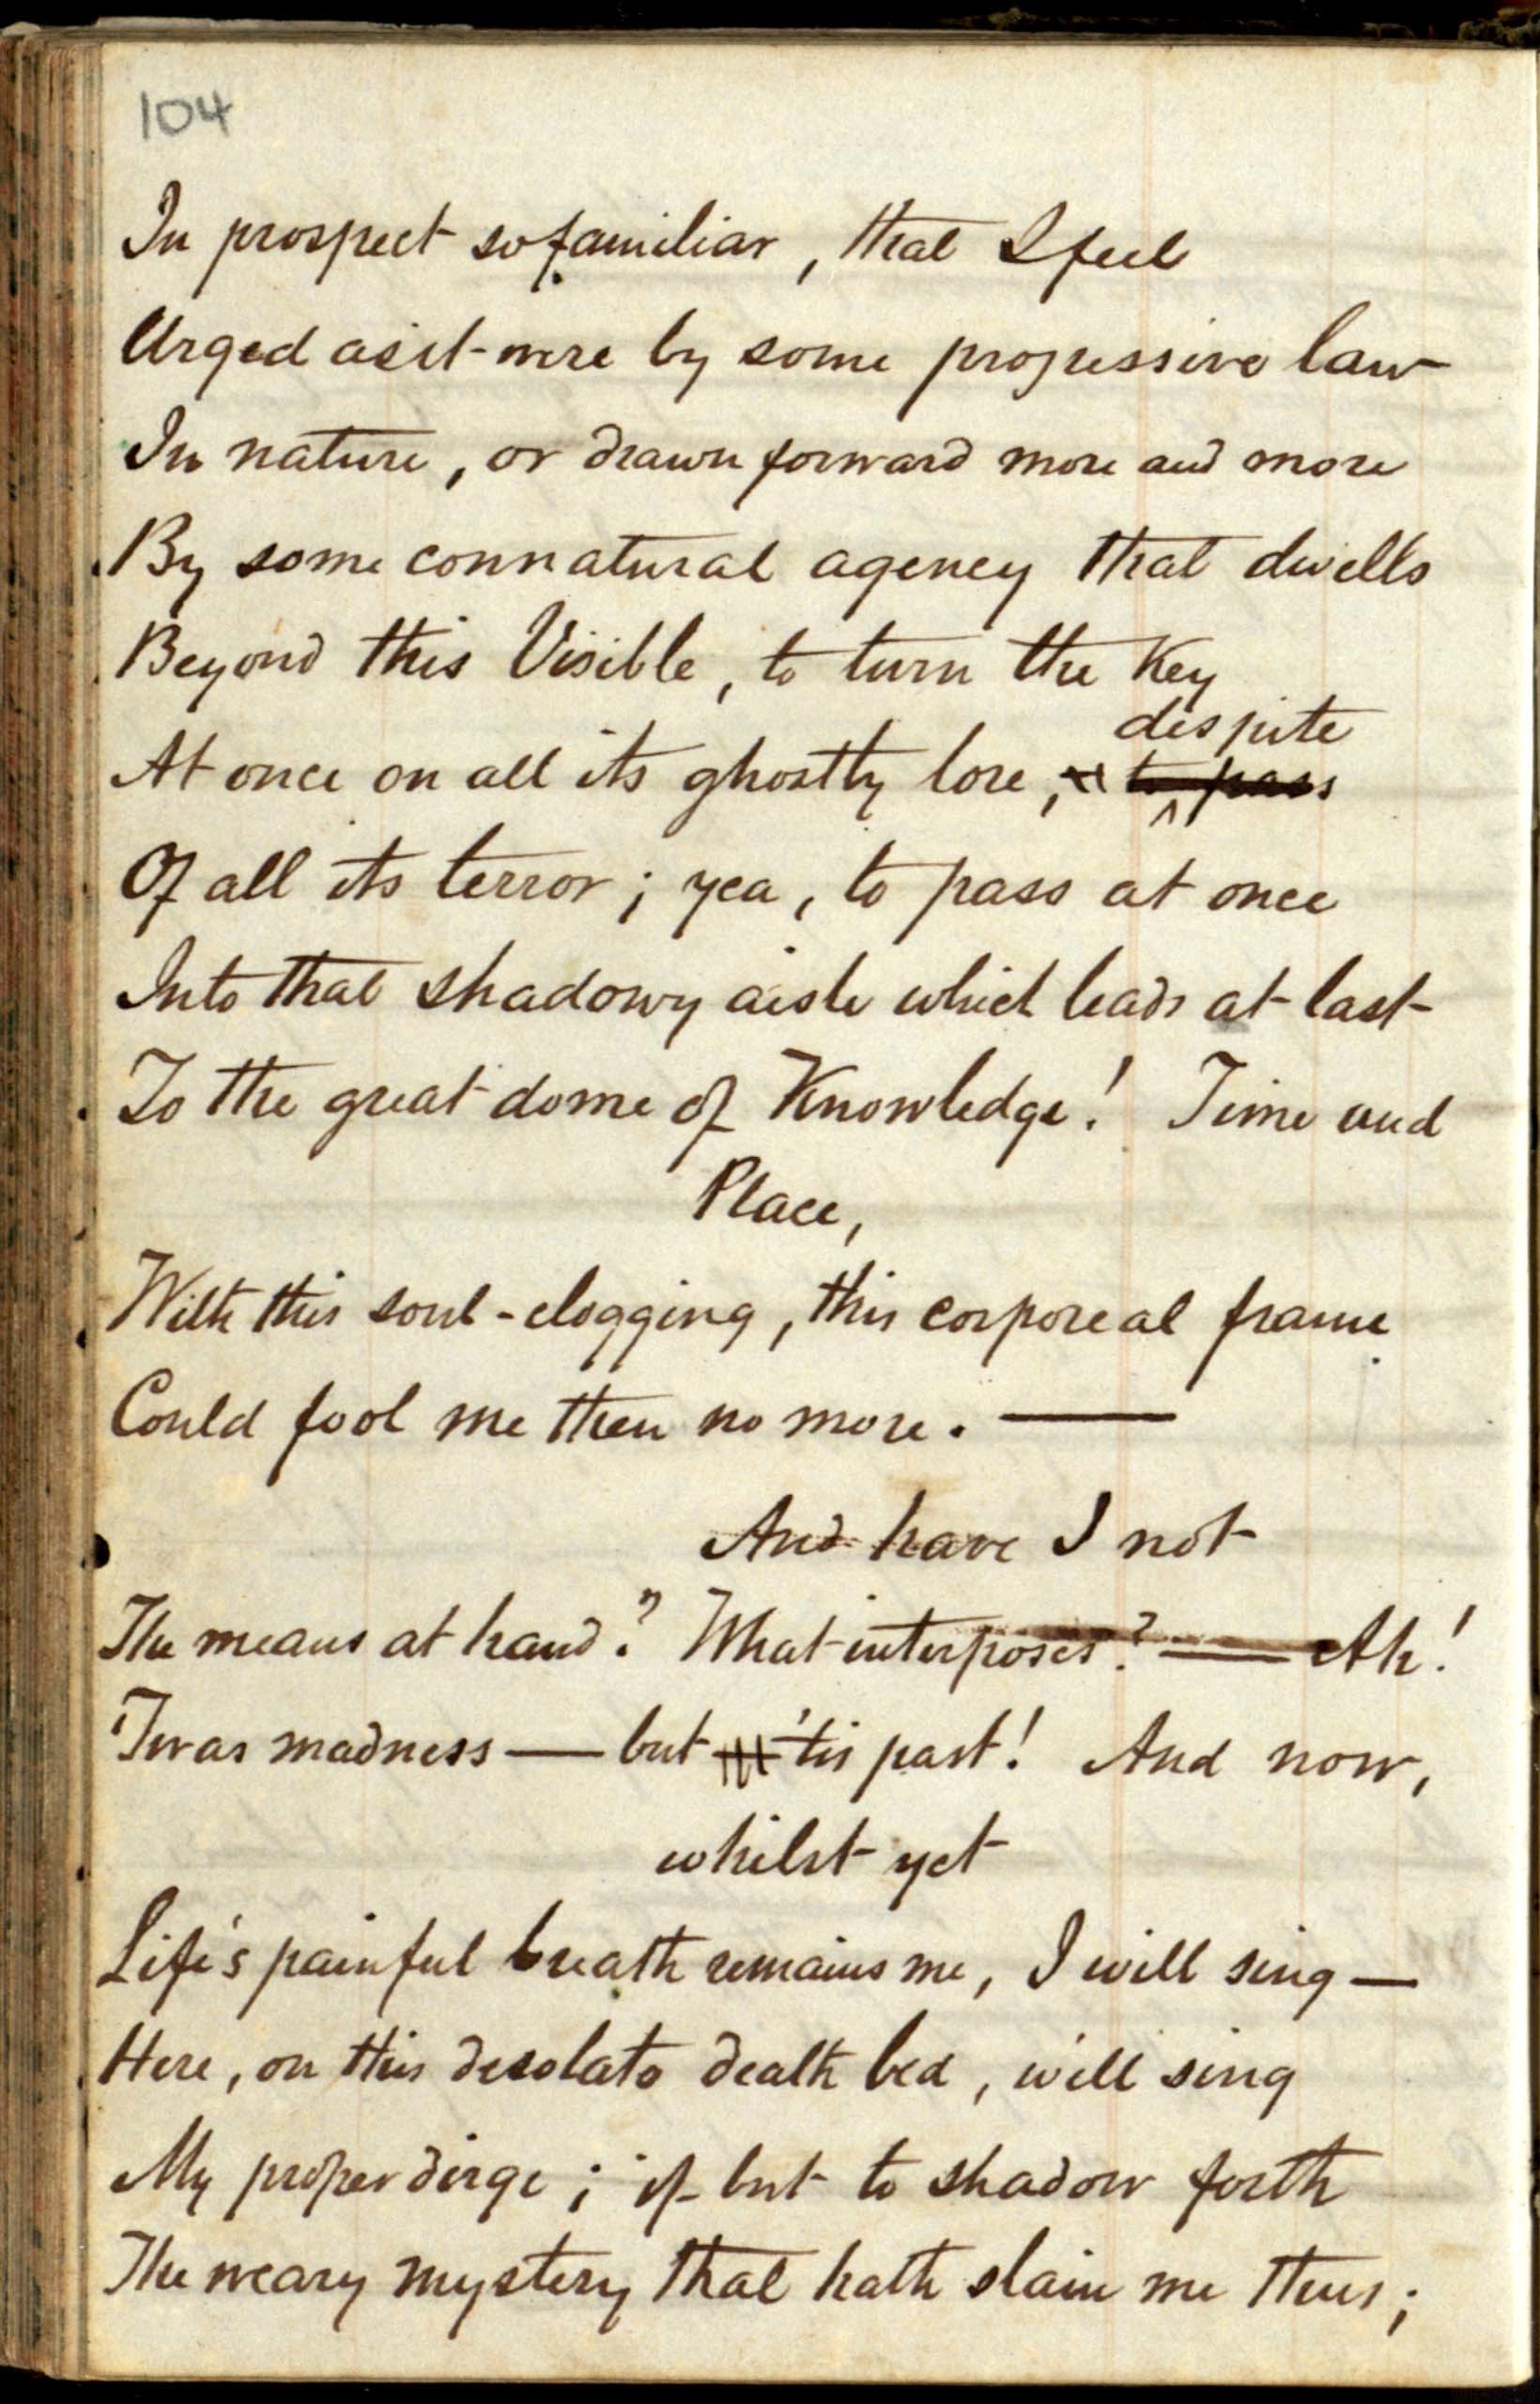 104
In prospect so familiar, that I feel
Urged as it were by some progressive law
In nature, or drawn forward more and more
By some connatural agency that dwells
Beyond this Visible, to turn the Key
despite
At once on all its ghostly lore, to pass
Of all its terror; yea, to pass at once
Into that shadowy aisle which leads at last
To the great dome of Knowledge! Time and
Place,
With this soul-clogging, this corporeal frame
Could fool me then no more. —
And have I not
The means at hand? What interposes? — Ah!
'Twas madness — but 'tis past! And now,
whilst yet
Life's painful breath remains me, I will sing —
Here, on this desolate death bed, will sing
My proper dirge; if but to shadow forth
The weary mystery that hath slain me thus;